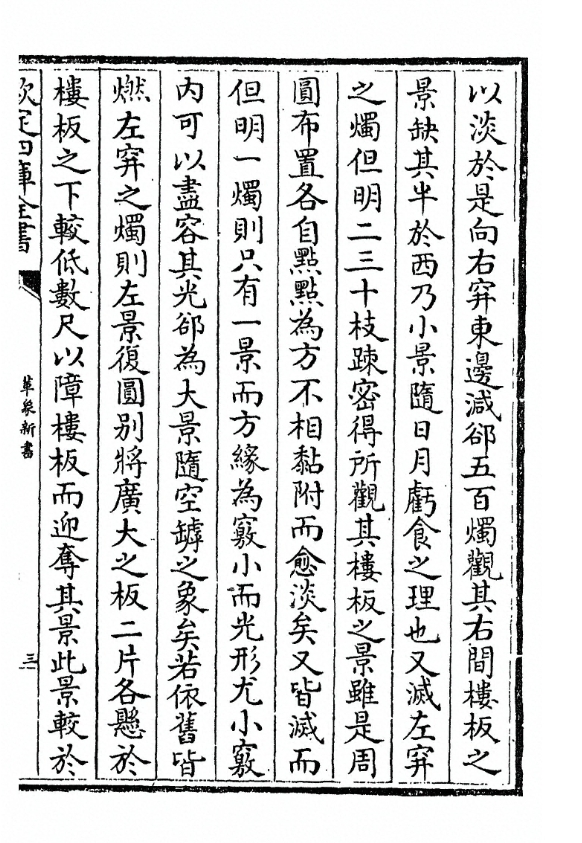 以淡於是向右穽東邊減郤五百燭觀其右間樓板之
景缺其半於西乃小景隨日月虧食之理也又滅左穽
之燭但明二三十枝疎密得所觀其樓板之景雖是周
圓布置各自點點為方不相黏附而愈淡矣又皆滅而
但明一燭則只有一景而方緣為竅小而光形尤小竅
内可以盡容其光郤為大景隨空罅之象矣若依舊皆
燃左穽之燭則左景復圓别將廣大之板二片各懸於
樓板之下較低數尺以障樓板而迎奪其景此景較於
欽定四庫全書
革象新書
三